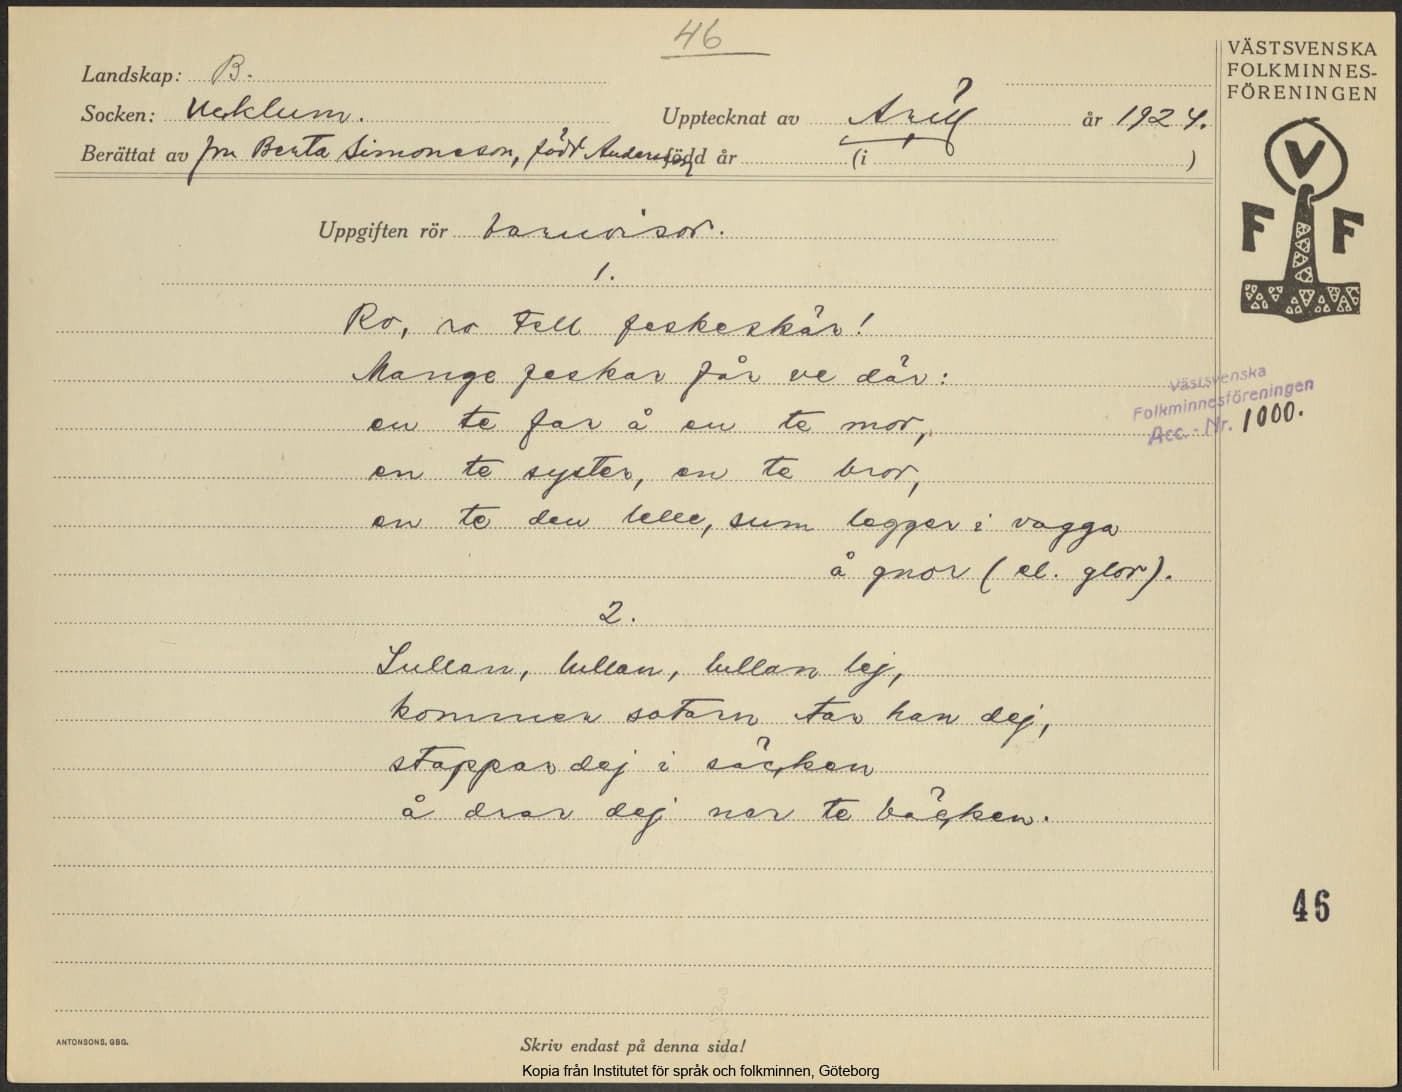 46
VÄSTSVENSKA
FOLKMINNES-
FÖRENINGEN
Landskap: B.
Socken: Ucklum.
Upptecknat av Arill år 1924.
Berättat av fru Berta Simonsson, född Andersson född år (i )
V
F F
Uppgiften rör barnvisor.
1.
Ro, ro tell feskeskär!
Mange feskar får ve där:
en te far å en te mor,
en te syster, en te bror,
en te den lelle, sum legger i vagga
å gnor (el. glor).
Västsvenska
Folkminnesföreningen
Acc. - Nr. 1000.
2.
Lullan, lullan, lullan lej,
kommer satarn tar han dej,
stappar dej i säcken
å drar dej ner te bäcken.
46
ANTONSONS, GBG.
Skriv endast på denna sida!
Kopia från Institutet för språk och folkminnen, Göteborg